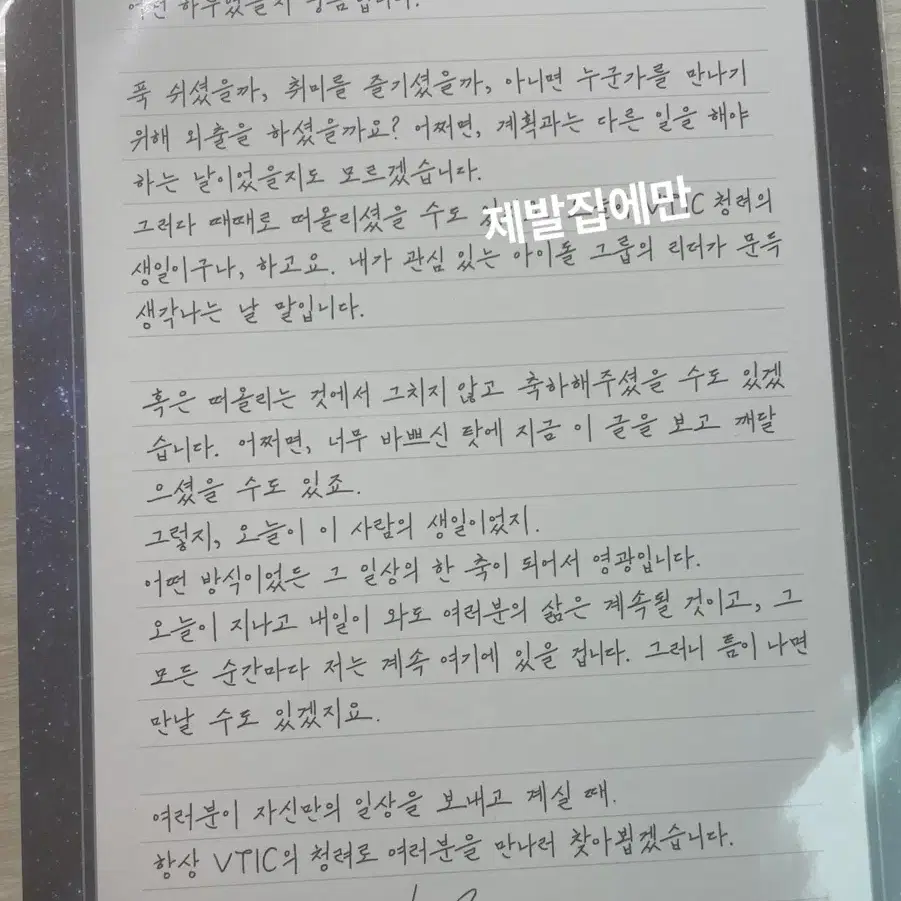 어떤 하루였을지 궁금합니다.
푹 쉬셨을까, 취미를 즐기셨을까, 아니면 누군가를 만나기
위해 외출을 하셨을까요? 어쩌면, 계획과는 다른 일을 해야
하는 날이었을지도 모르겠습니다.
그러다 때때로 떠올리셨을 수도 VTIC 청려의
제발집에만
생일이구나, 하고요. 내가 관심 있는 아이돌 그룹의 리더가 문득
생각나는 날 말입니다.
혹은 떠올리는 것에서 그치지 않고 축하해주셨을 수도 있겠
습니다. 어쩌면, 너무 바쁘신 탓에 지금 이 글을 보고 깨달
으셨을 수도 있죠.
그렇지, 오늘이 이 사람의 생일이었지.
어떤 방식이었든 그 일상의 한 축이 되어서 영광입니다.
오늘이 지나고 내일이 와도 여러분의 삶은 계속될 것이고, 그
모든 순간마다 저는 계속 여기에 있을 겁니다. 그러니 틈이 나면
만날 수도 있겠지요.
여러분이 자신만의 일상을 보내고 계실 때.
항상 VTIC의 청려로 여러분을 만나러 찾아뵙겠습니다.